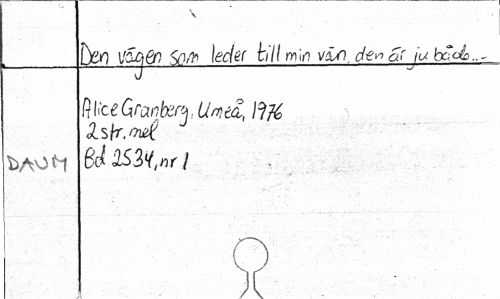 Den vägen som leder till min vän, den är ju både...
Alice Granberg, Umeå, 1976
2 str. mel
DAUM Bd 2534, nr 1